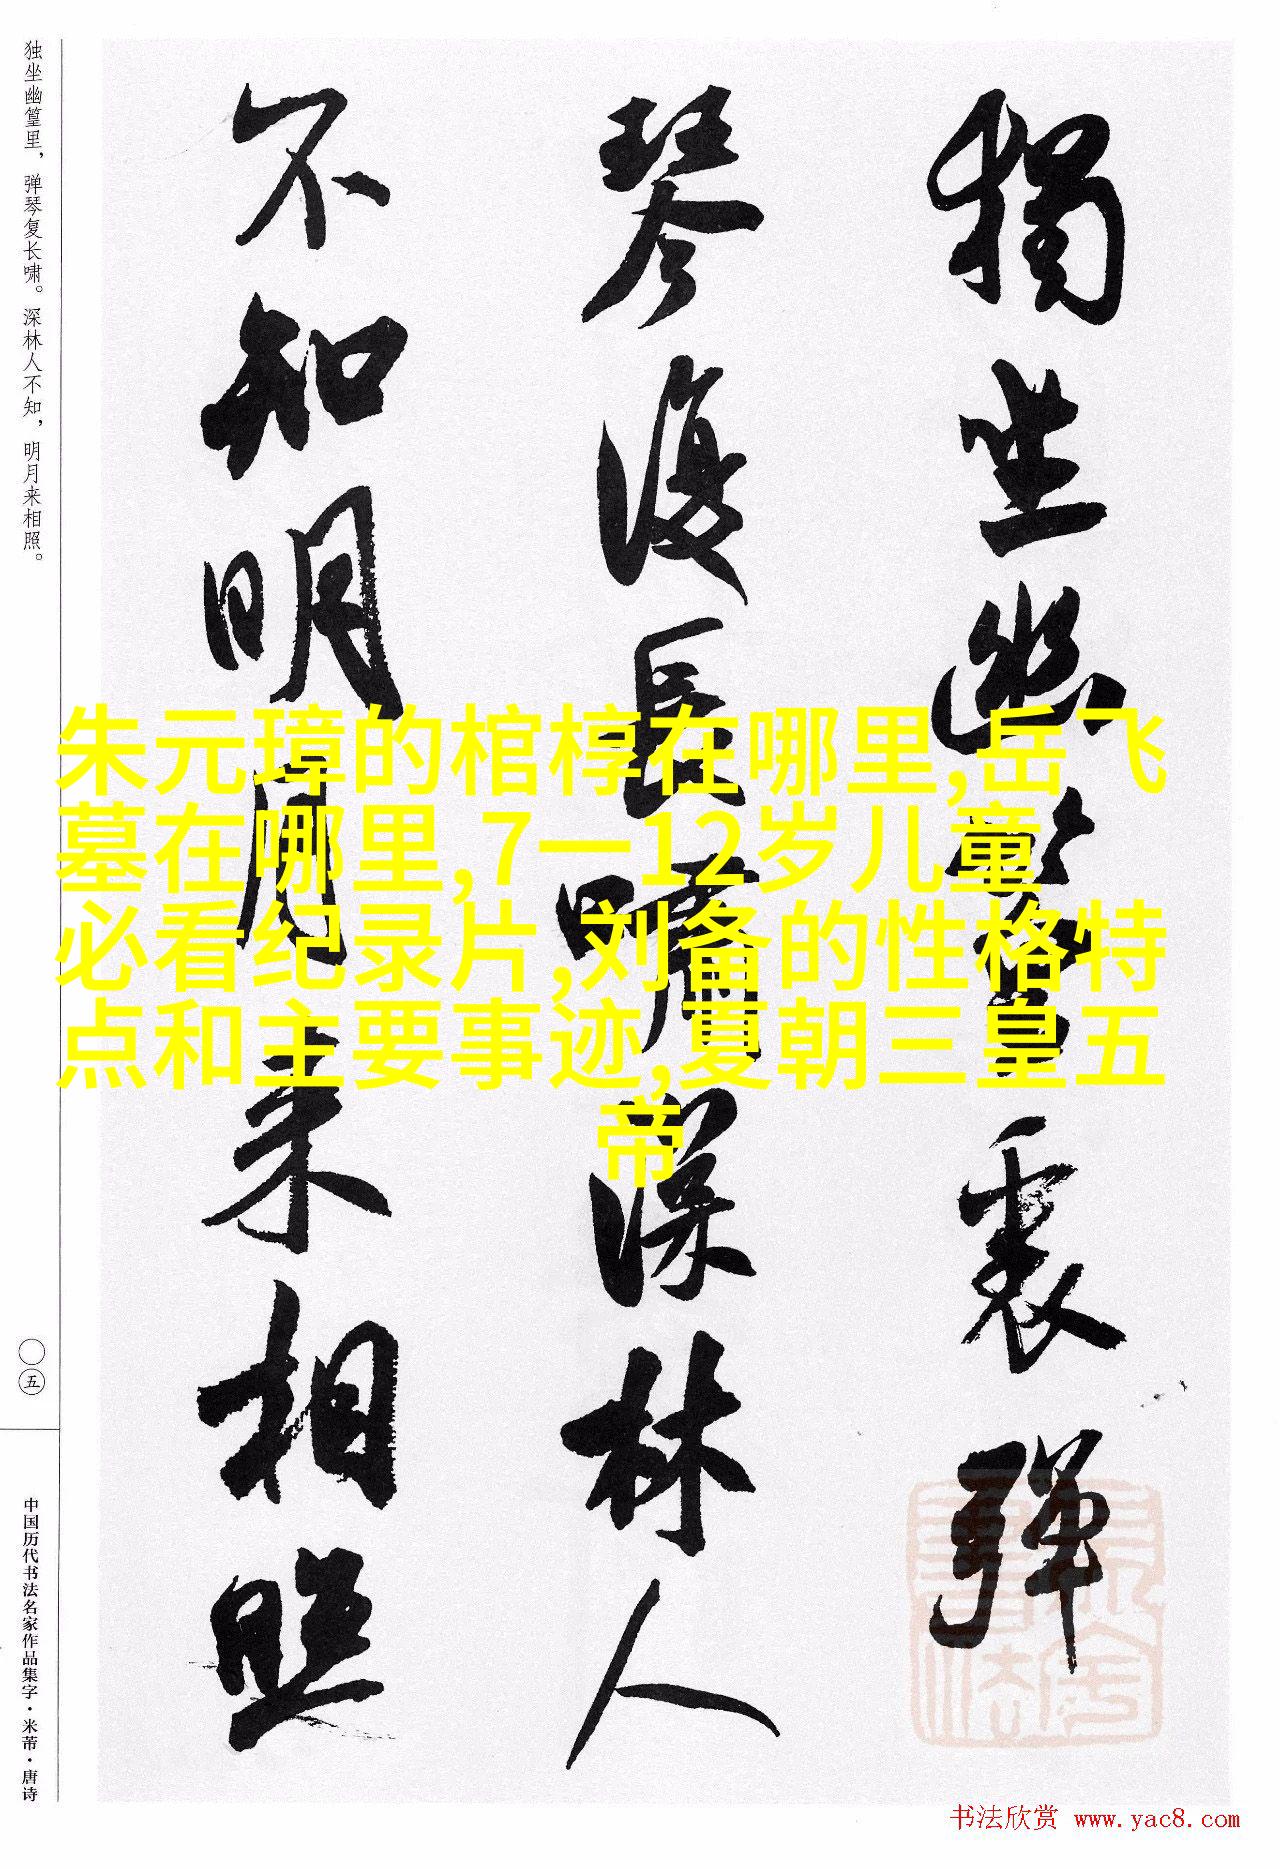 獨坐幽篁裏彈
琴復長嘯深林人
不知明月来相照
独坐幽篁里，弹琴复长啸。深林人不知，明月来相照。
〇五
中国历代书法名家作品集字·米芾·唐诗
朱元璋的棺椁在哪里,岳飞
墓在哪里,7一12岁儿童
必看纪录片,刘备的性格特
点和主要事迹,夏朝三皇五
帝
书法欣赏 www.yac8.com